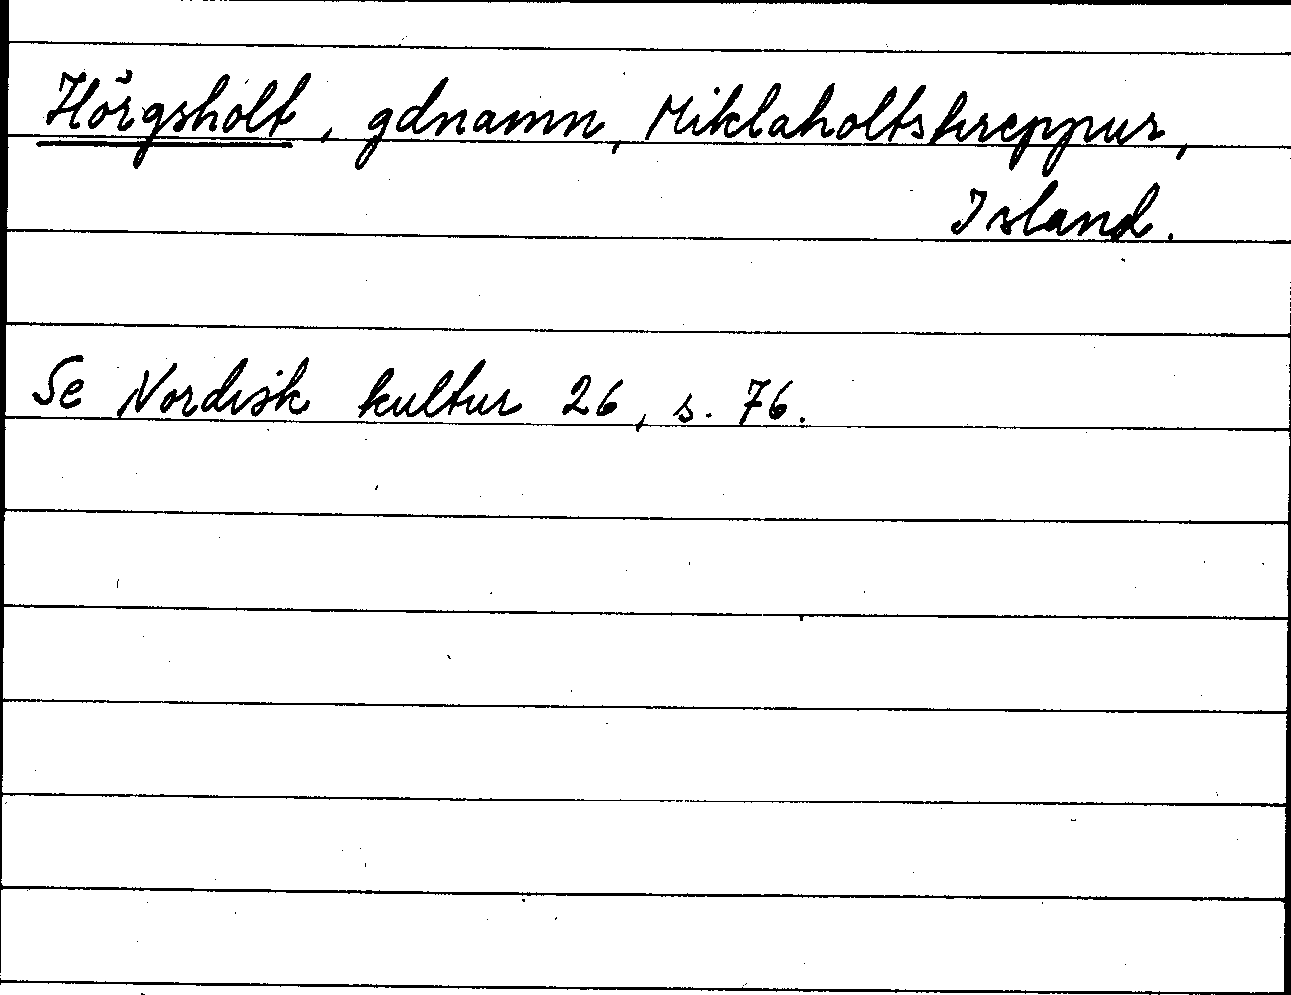 Hörgsholt, gdnamn, Miklaholtshreppur,
Island.
Se Nordisk kultur 26, s. 76.